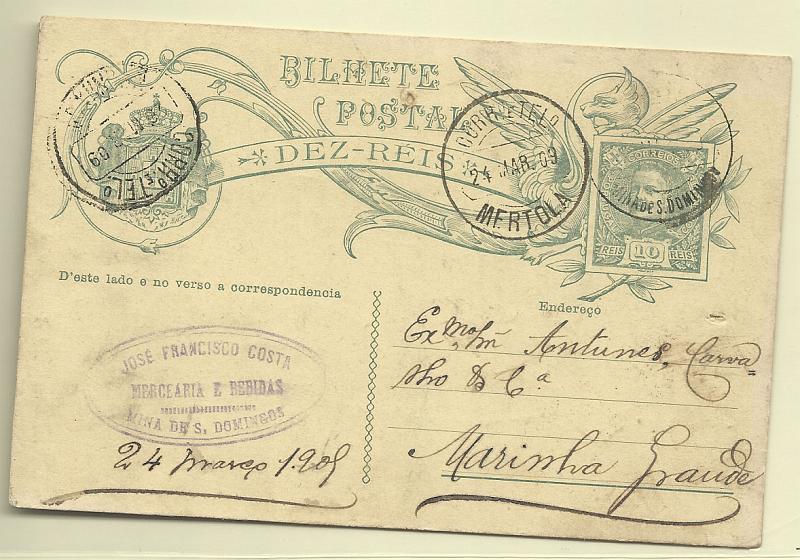 BILHETE
POSTAL
DEZ-RÉIS
CORRº E TELº
CORRº E TELº
24 MAR. 09
MERTOLA
CORREIOS
MINA DE S. DOMINGOS
REIS 10 REIS
D'este lado e no verso a correspondencia
Endereço
JOSÉ FRANCISCO COSTA
MERCEARIA E BEBIDAS
MINA DE S. DOMINGOS
24 março 1909
Antunes, Carva=
lho & Cª
Marinha Grande